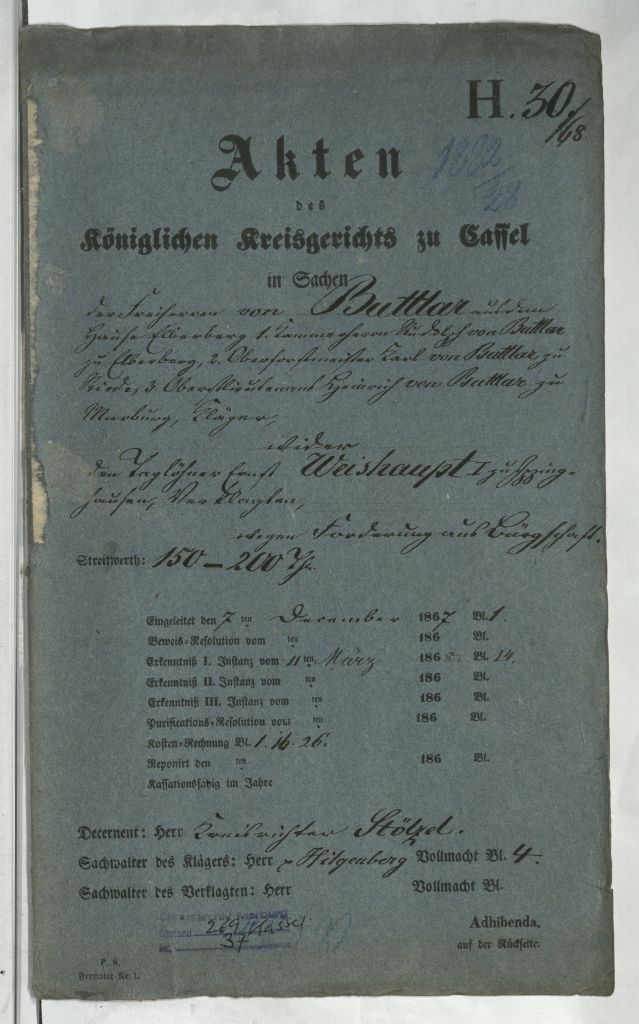 H. 30/68
Akten
1832/28
des
Königlichen Kreisgerichts zu Cassel
in Sachen
der Freiherren von Buttlar aus dem
Hause Elberberg 1. Kammerherrn Rudolph von Buttlar
zu Elberberg, 2. Oberforstmeister Karl von Buttlar zu
Riede, 3. Oberstlieutenant Heinrich von Buttlar zu
Marburg, Kläger,
wider
den Taglöhner Ernst Weishaupt I zu
hausen, Verklagten,
wegen Forderung aus Bürgschaft.
Streitwerth: 150 – 200 Thr.
Eingeleitet den 7ten December 1867 Bl. 1.
Beweis-Resolution vom ten 186 Bl.
Erkenntniß I. Instanz vom 11ten März 1868. Bl. 14.
Erkenntniß II. Instanz vom ten 186 Bl.
Erkenntniß III. Instanz vom ten 186 Bl.
Purifications-Resolution vom ten 186 Bl.
Kosten-Rechnung Bl. 1. 16. 26.
Reponirt den ten 186 Bl.
Kassationsfähig im Jahre
Decernent: Herr Kreisrichter Stölzel.
Sachwalter des Klägers: Herr Hilgenberg Vollmacht Bl. 4.
Sachwalter des Verklagten: Herr Vollmacht Bl.
Staatsarchiv Marburg
Bestand 269 Kassel
Nr. 37
Adhibenda,
auf der Rückseite.
P. S.
Formular Nr. 1.